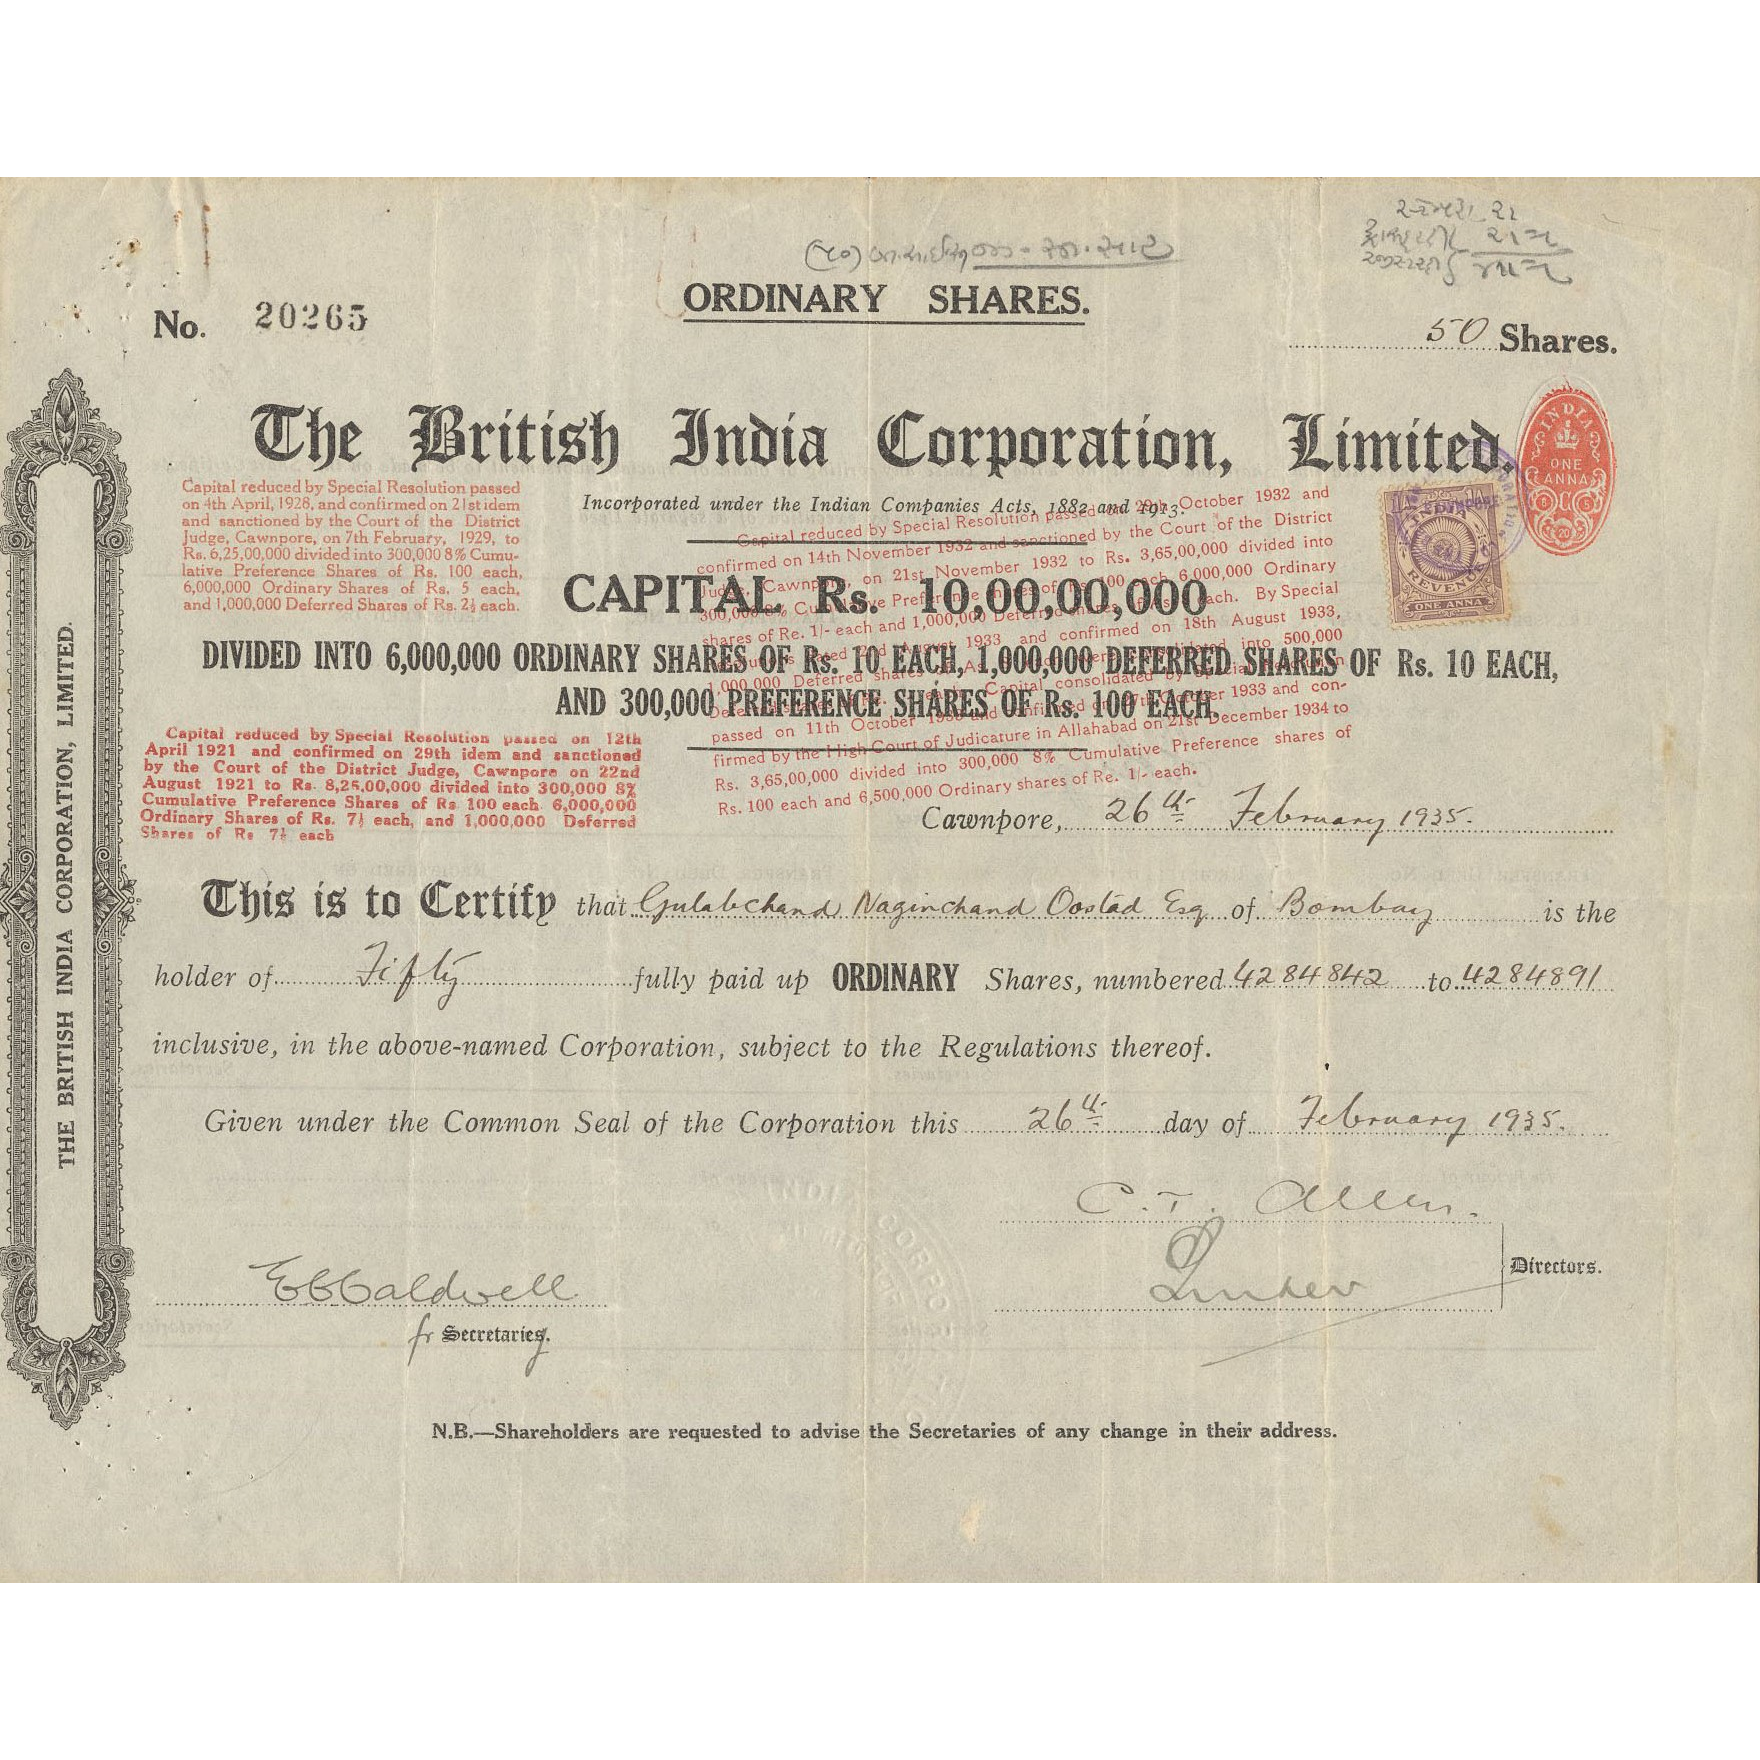 ORDINARY SHARES.
No. 20265
50 Shares.
The British India Corporation, Limited.
Incorporated under the Indian Companies Acts, 1882 and 1913.
Capital reduced by Special Resolution passed
on 4th April, 1928, and confirmed on 21st idem
and sanctioned by the Court of the District
Judge, Cawnpore, on 7th February, 1929, to
Rs. 6,25,00,000 divided into 300,000 8% Cumu-
lative Preference Shares of Rs. 100 each,
6,000,000 Ordinary Shares of Rs. 5 each,
and 1,000,000 Deferred Shares of Rs. 2½ each.
Capital reduced by Special Resolution passed on 29th October 1932 and
confirmed on 14th November 1932 and sanctioned by the Court of the District
Judge, Cawnpore, on 21st November 1932 to Rs. 3,65,00,000 divided into
300,000 8% Cumulative Preference shares of Rs. 100 each 6,000,000 Ordinary
shares of Re. 1/- each and 1,000,000 Deferred shares of each. By Special
dated 2nd August 1933 and confirmed on 18th August 1933,
1,000,000 Deferred shares of into 500,000
Capital consolidated by Special Resolution
passed on 11th October 1933 and confirmed on 27th October 1933 and con-
firmed by the High Court of Judicature in Allahabad on 21st December 1934 to
Rs. 3,65,00,000 divided into 300,000 8% Cumulative Preference shares of
Rs. 100 each and 6,500,000 Ordinary shares of Re. 1/- each.
CAPITAL Rs. 10,00,00,000
DIVIDED INTO 6,000,000 ORDINARY SHARES OF Rs. 10 EACH, 1,000,000 DEFERRED SHARES OF Rs. 10 EACH,
AND 300,000 PREFERENCE SHARES OF Rs. 100 EACH.
Capital reduced by Special Resolution passed on 12th
April 1921 and confirmed on 29th idem and sanctioned
by the Court of the District Judge, Cawnpore on 22nd
August 1921 to Rs. 8,25,00,000 divided into 300,000 8%
Cumulative Preference Shares of Rs 100 each 6,000,000
Ordinary Shares of Rs. 7½ each, and 1,000,000 Deferred
Shares of Rs 7½ each
INDIA
ONE
ANNA
INDIA
REVENUE
ONE ANNA
Cawnpore, 26th February 1935.
This is to Certify that Gulabchand Naginchand Oostad Esq of Bombay is the
holder of Fifty fully paid up ORDINARY Shares, numbered 4284842 to 4284891
inclusive, in the above-named Corporation, subject to the Regulations thereof.
Given under the Common Seal of the Corporation this 26th day of February 1935.
C. T. Allen.
Directors.
E Caldwell
fr Secretaries.
N.B.—Shareholders are requested to advise the Secretaries of any change in their address.
THE BRITISH INDIA CORPORATION, LIMITED.